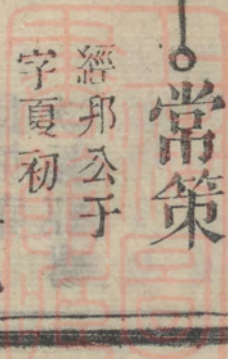 常策
經邦公子
字夏初